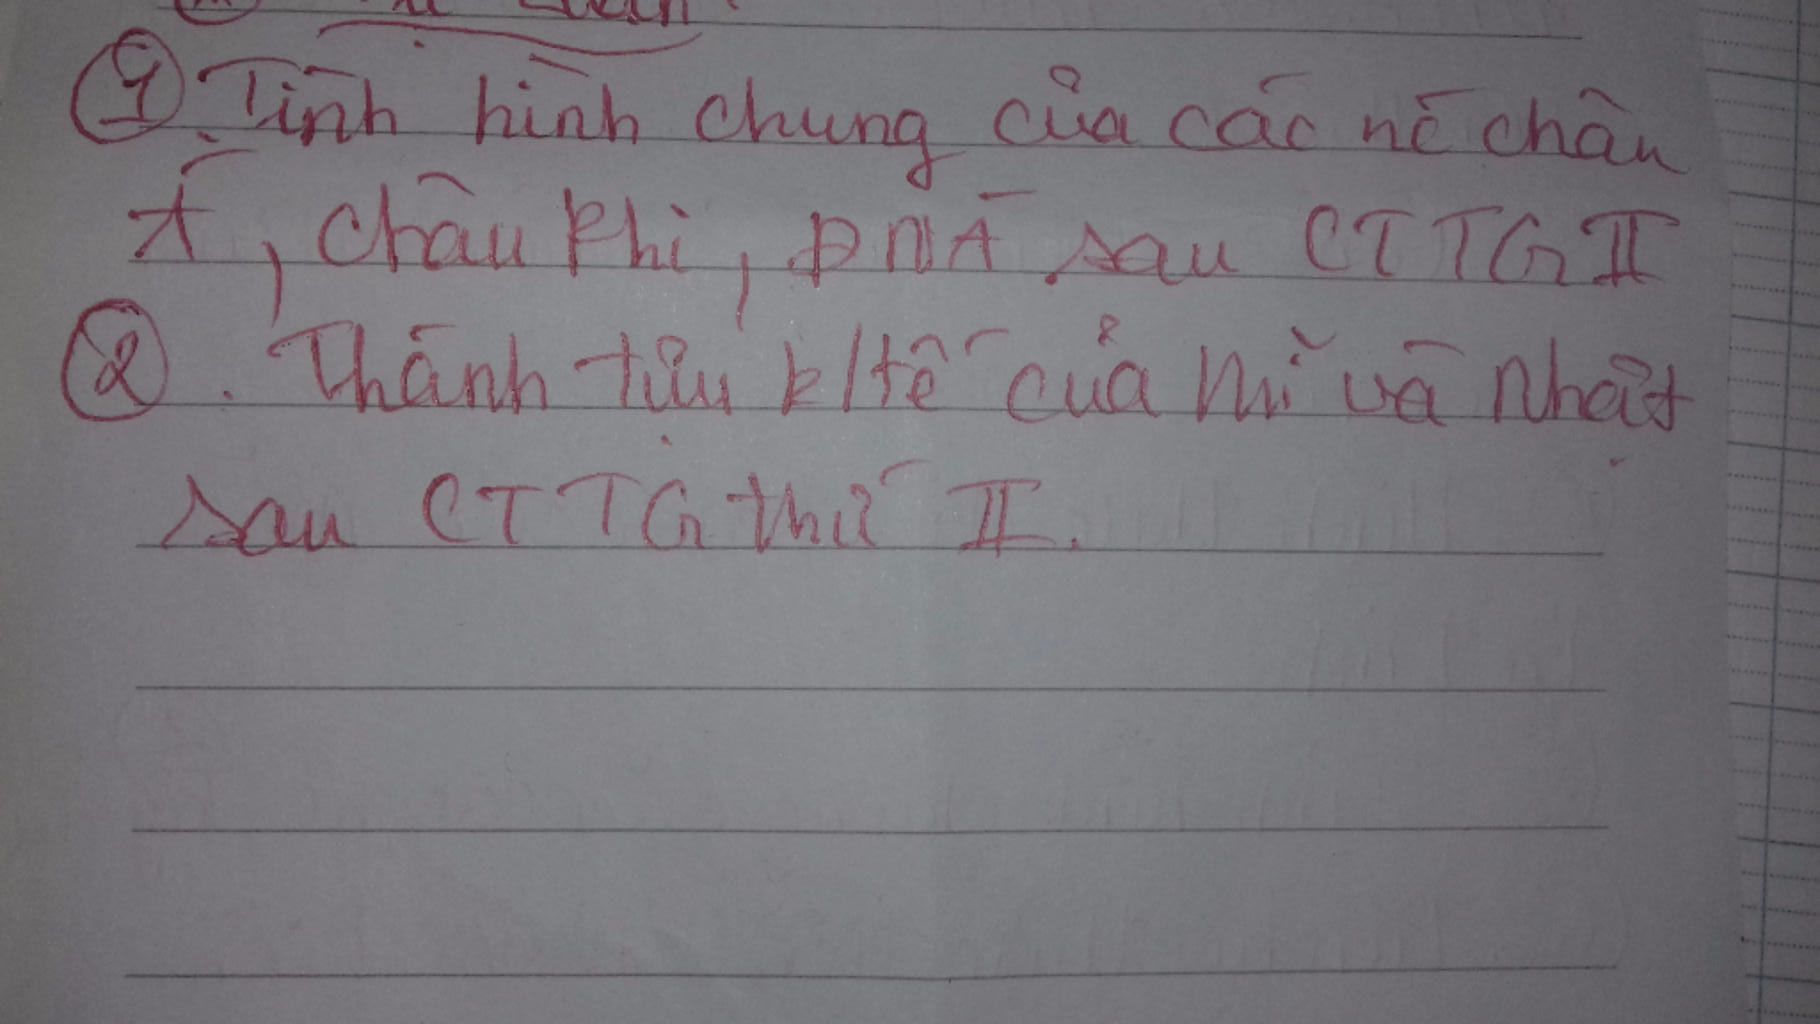 ① Tình hình chung của các nc châu
Á, Châu Phi, ĐNÁ sau CTTG II
②. Thành tựu k/tế của Mĩ và Nhật
sau CTTG thứ II.